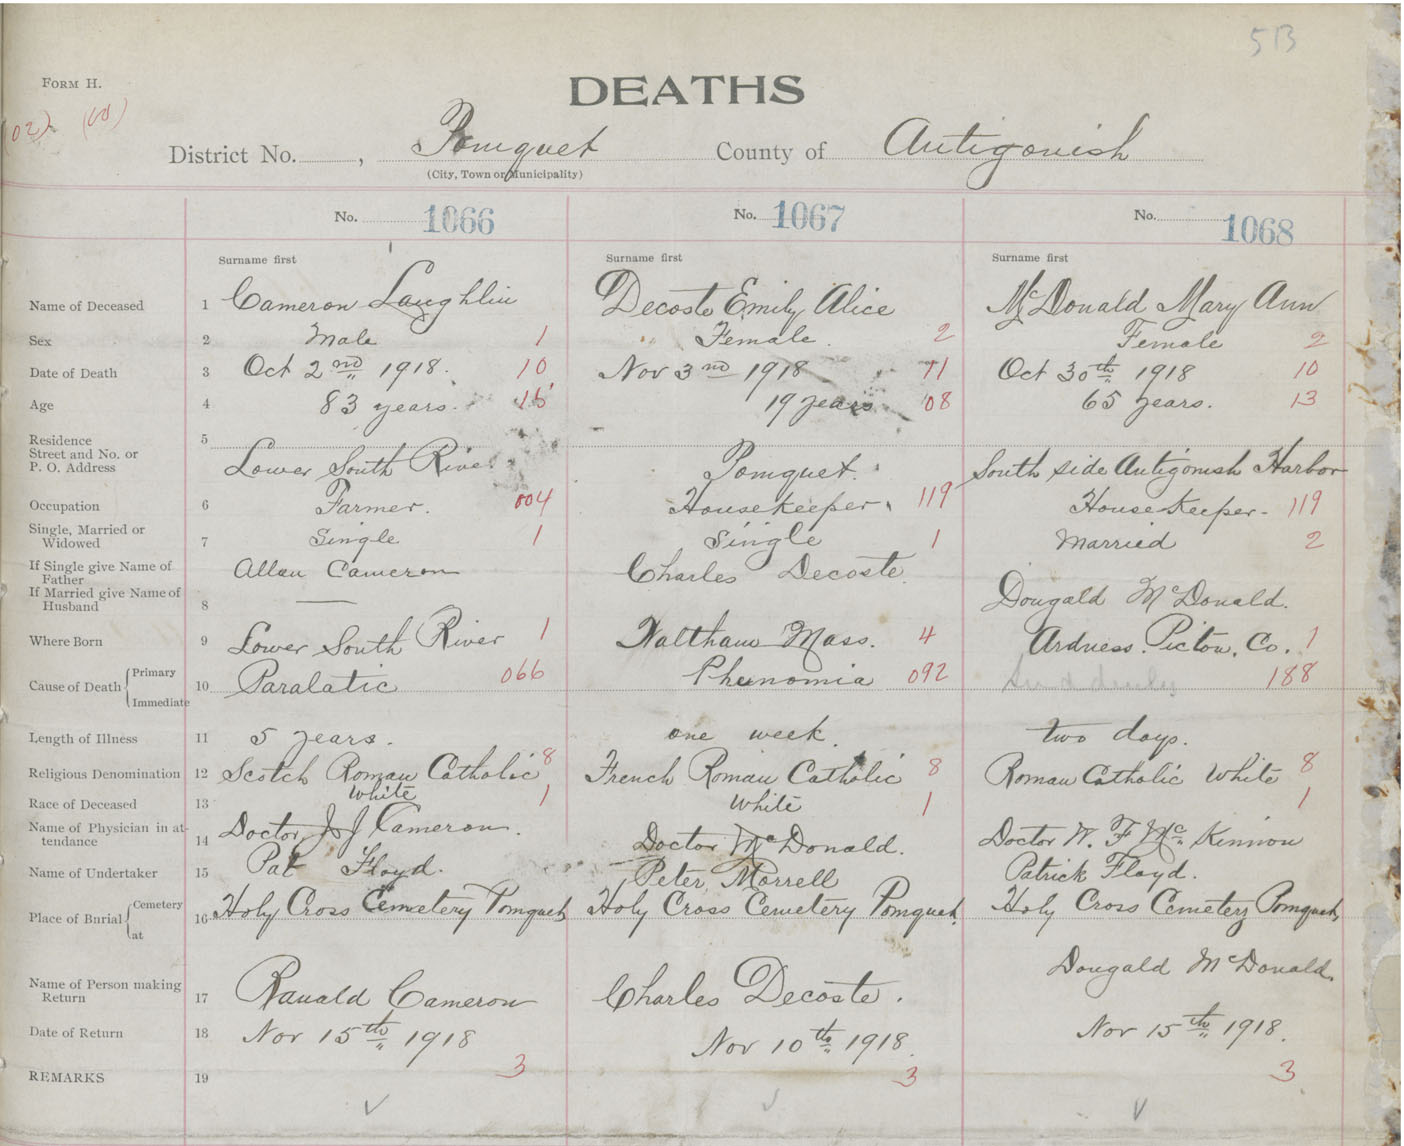 5B
FORM H.
DEATHS
(02) (00)
District No. , Pomquet County of Antigonish
(City, Town or Municipality)
No. 1066 No. 1067 No. 1068
Surname first Surname first Surname first
Name of Deceased 1 Cameron Laughlin Decoste Emily Alice McDonald Mary Ann
Sex 2 Male 1 Female. 2 Female 2
Date of Death 3 Oct 2nd 1918. 10 Nov 3rd 1918 11 Oct 30th 1918 10
Age 4 83 years. 15 19 years 08 65 years. 13
Residence 5
Street and No. or
P. O. Address Lower South River Pomquet. South side Antigonish Harbor
Occupation 6 Farmer. 004 Housekeeper. 119 House Keeper- 119
Single, Married or
Widowed 7 Single 1 Single 1 Married 2
If Single give Name of
Father Allan Cameron Charles Decoste
If Married give Name of
Husband 8 — Dougald McDonald.
Where Born 9 Lower South River 1 Waltham Mass. 4 Ardness. Picton. Co. 1
Cause of Death { Primary
10 Paralatic 066 Pheunomia 092 Suddenly 188
Immediate
Length of Illness 11 5 years. one week. two days.
Religious Denomination 12 Scotch Roman Catholic 8 French Roman Catholic 8 Roman Catholic White 8
Race of Deceased 13 White 1 White 1 1
Name of Physician in at-
tendance 14 Doctor J J Cameron. Doctor McDonald. Doctor W. F Mc Kinnon
Name of Undertaker 15 Pat Floyd. Peter Morrell Patrick Floyd.
Place of Burial { Cemetery
16 Holy Cross Cemetery Pomquet Holy Cross Cemetery Pomquet. Holy Cross Cemetery Pomquet,
at
Name of Person making
Return 17 Ranald Cameron Charles Decoste. Dougald McDonald.
Date of Return 18 Nov 15th 1918 Nov 10th 1918. Nov 15th 1918.
REMARKS 19 3 3 3